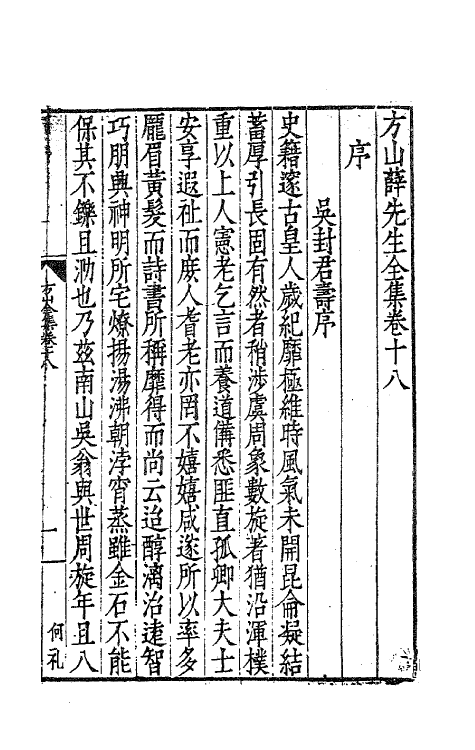 方山薛先生全集卷十八
序
吳封君壽序
史籍邃古皇人歲紀靡極維時風氣未開昆侖凝結
蓄厚引長固有然者稍涉虞周象數旋著猶沿渾樸
重以上人憲老乞言而養道備悉匪直孤卿大夫士
安享遐祉而庶人耆老亦罔不嬉嬉咸遂所以率多
龎眉黃髮而詩書所稱靡得而尚云迨醇漓治逺智
巧朋興神明所宅燎揚湯沸朝浡宵蒸雖金石不能
保其不鑠且泐也乃茲南山吳翁與世周旋年且八
方山全集卷十八
一
何礼